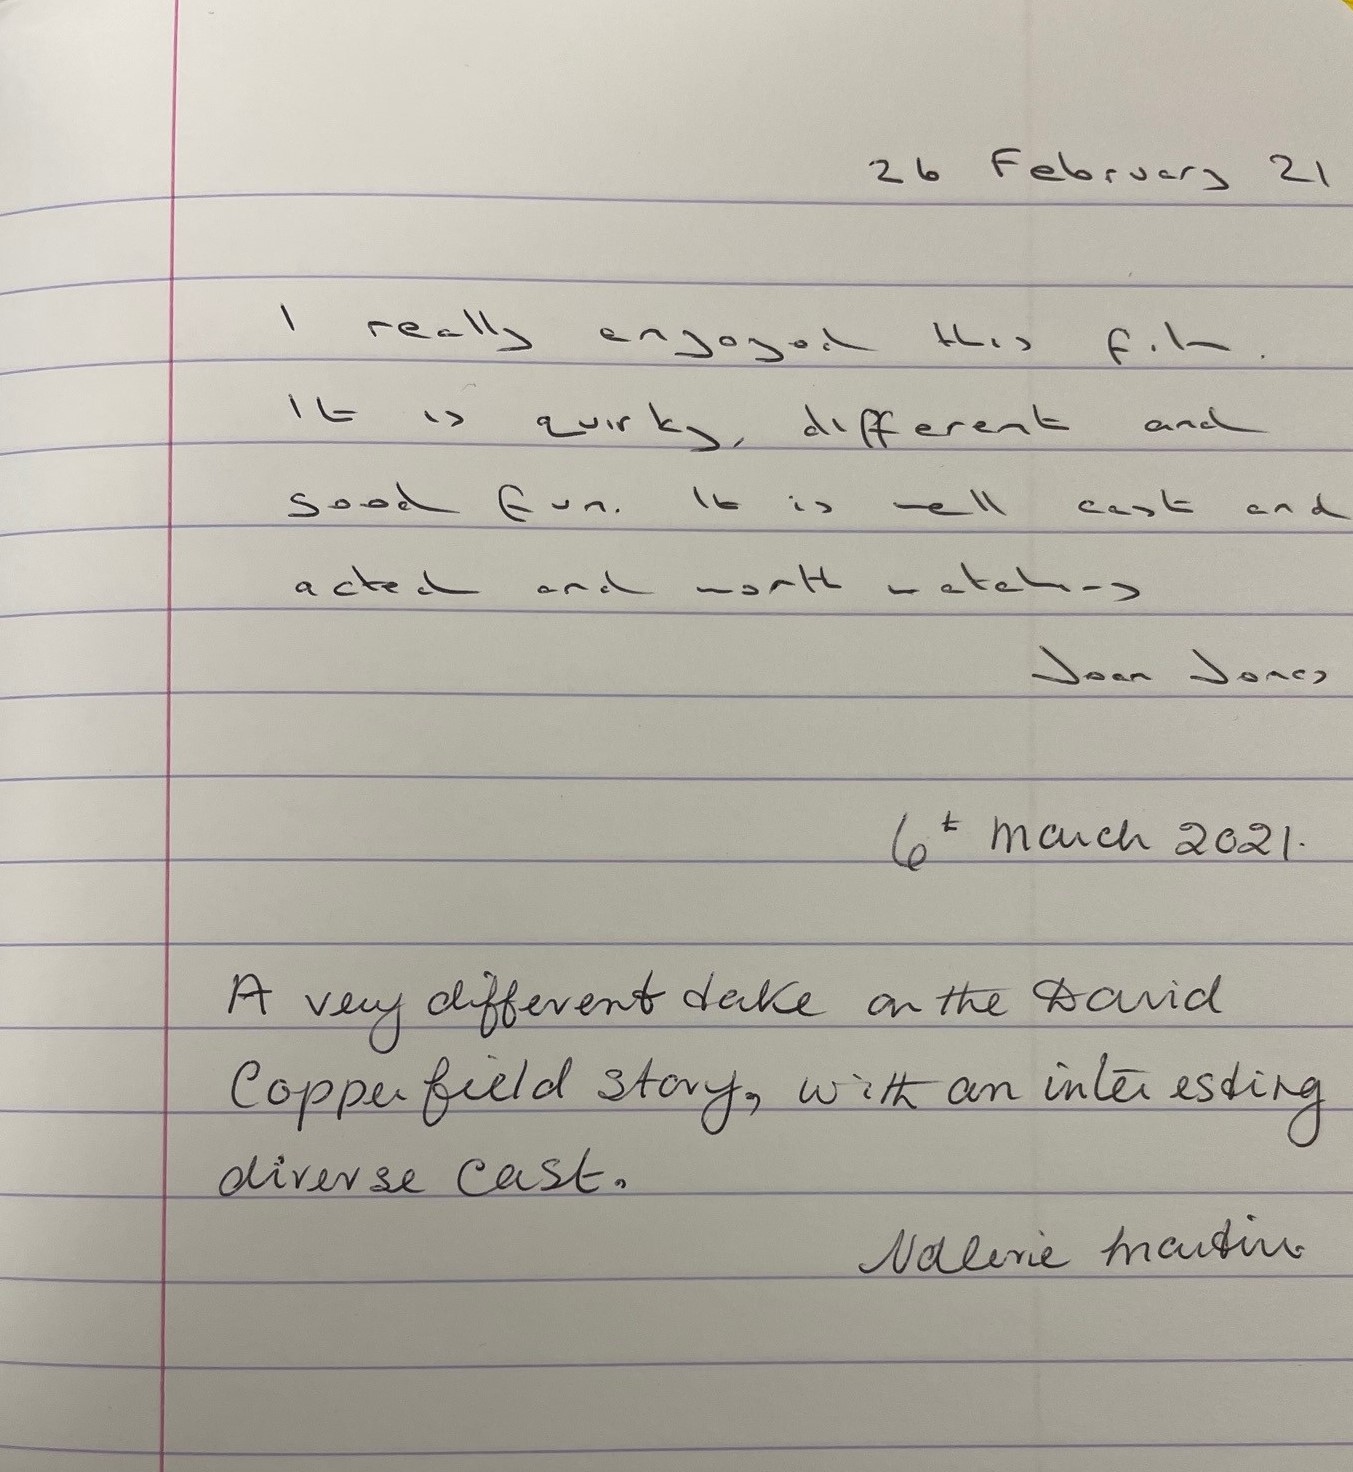 26 February 21
I really enjoyed this film.
It is quirky, different and
good fun. It is well cast and
acted and worth watching
Joan Jones
6t March 2021.
A very different take on the David
Copperfield story, with an interesting
diverse cast.
Valerie Martin